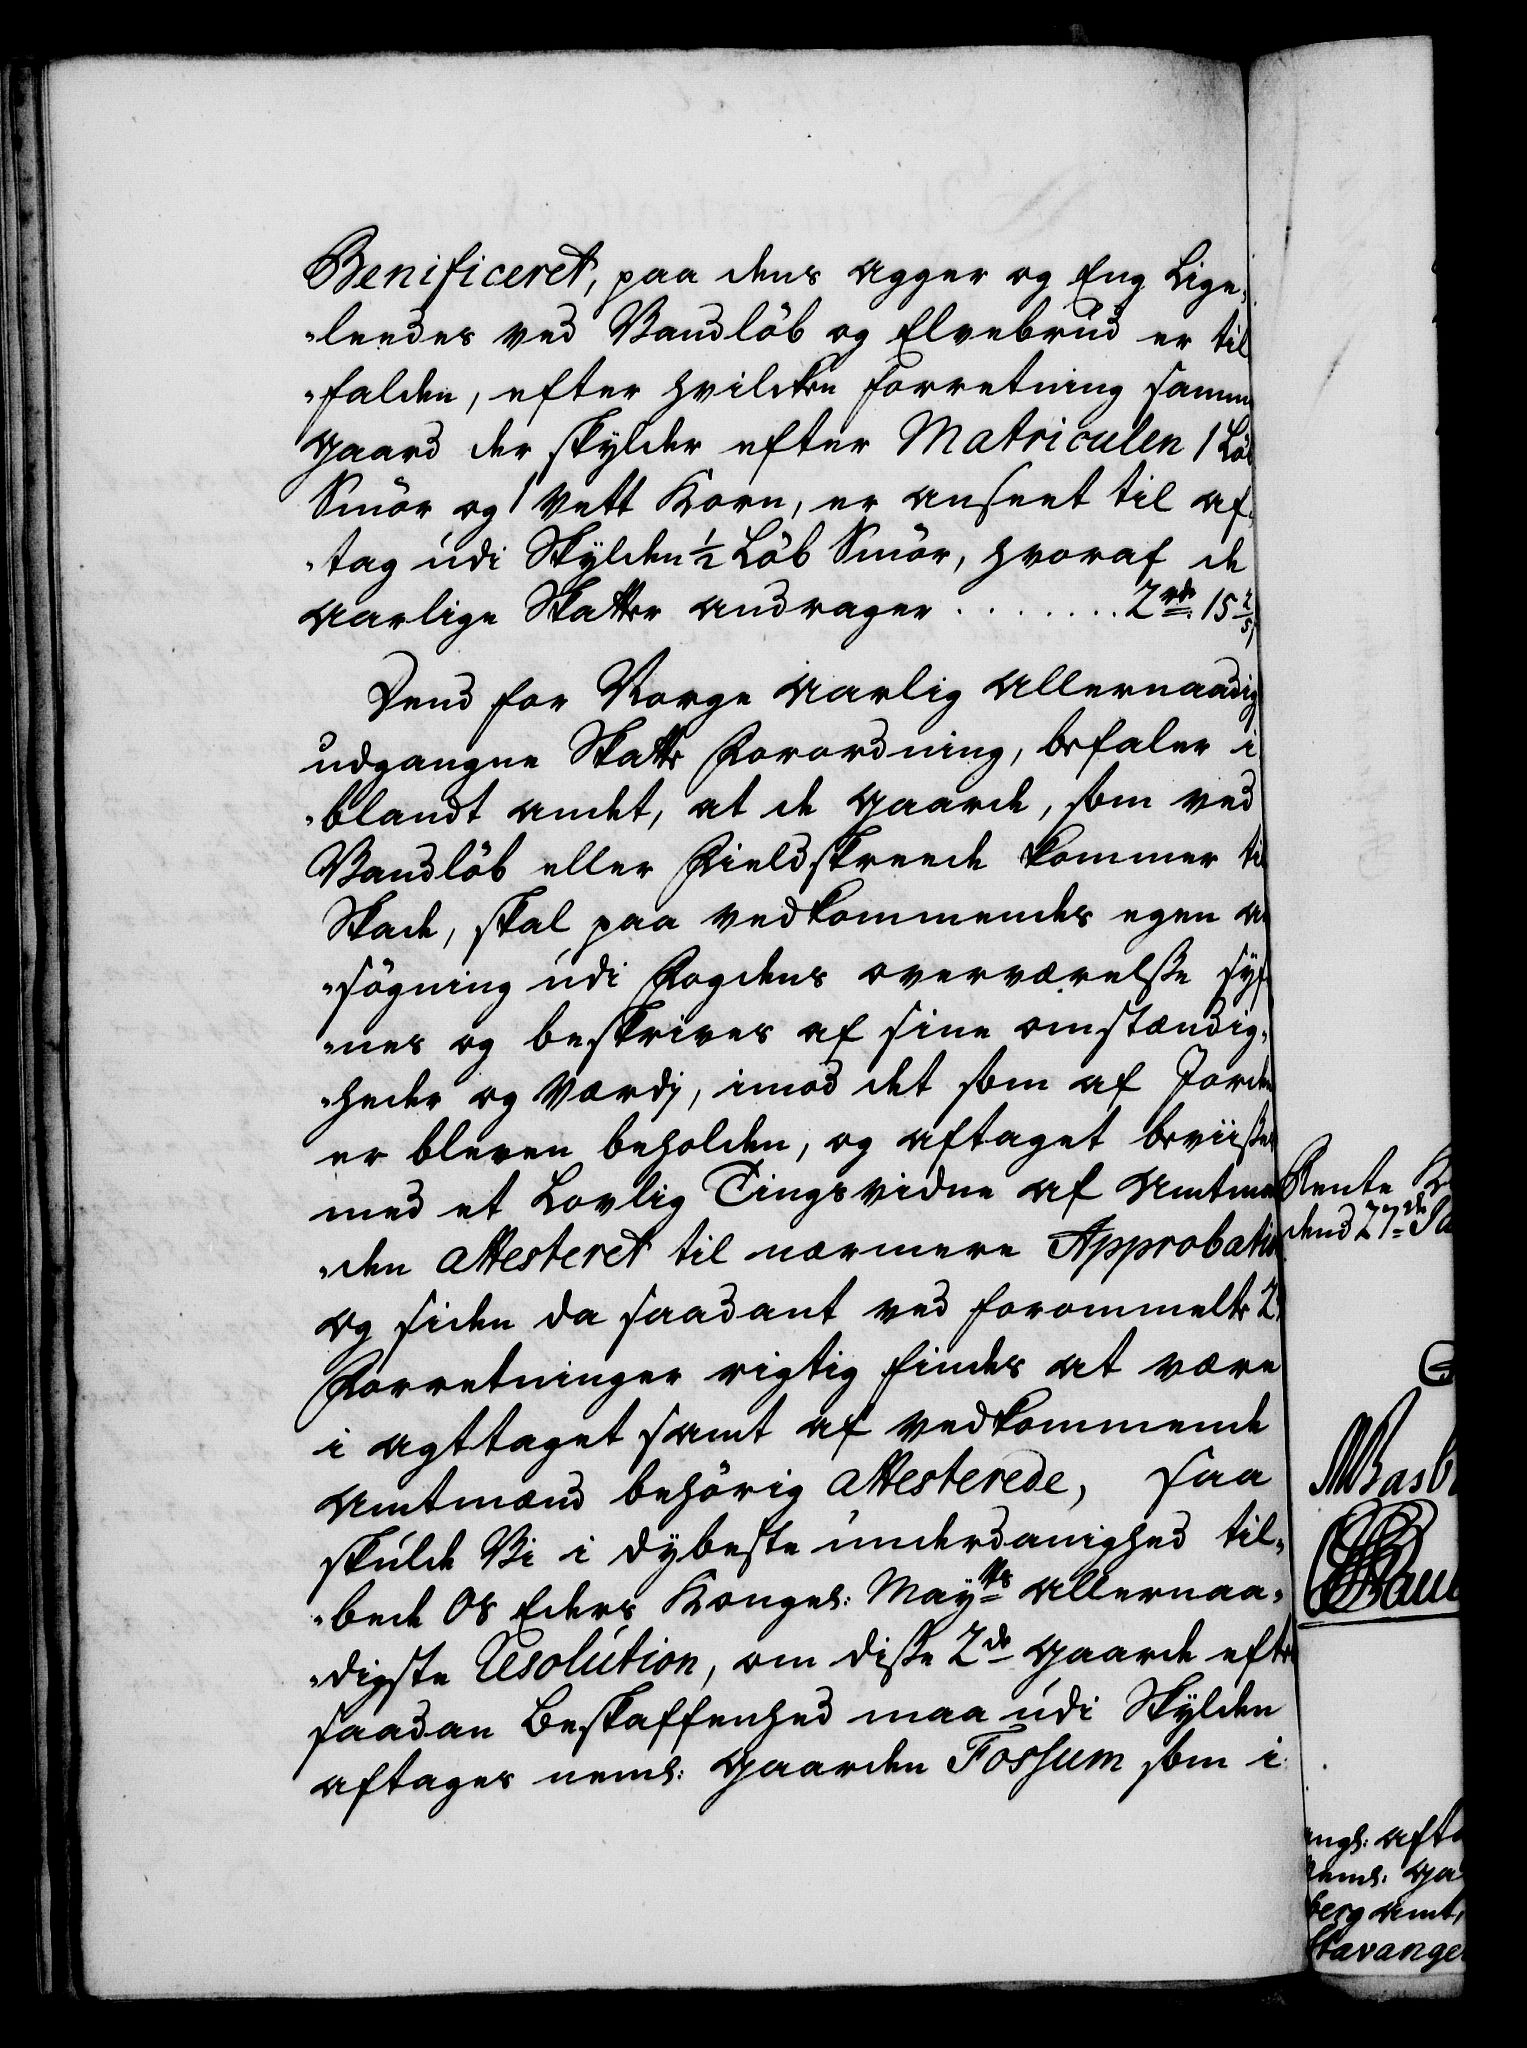 Benificeret, paa dens Agger og Eng Lige„
„leedes ved Vandlöb og Elvebrud er til
„falden, efter hvilcken Forretning samme
Gaard der skylder efter Matriculen 1 Löb
Smör og 1 Vett Korn, er anseet til af„
„tag udi Skylden ½ Löb Smör, hvoraf de
Aarlige Skatter andrager . . . . . . . . 2 rdr. 15 2/5
Dend for Norge Aarlig Allernaadig
udgangne Skatte Forordning, befaler i
„blandt andet, at de Gaarde, som ved
Vandlöb eller Fieldskreede kommer til
Skade, skal paa vedkommendes egen an
„sögning udi Fogdens overværelsse syf
„nes og beskrives af sine omstændig„
„heder og Værdj, imod det som af Jorden
er bleven beholden, og aftaget beviisse
med et Lovlig Tingsvidne af Amtmæn
„den attesteret til nærmere Approbation
og siden da saadant ved forommelte 2de
Forretninger rigtig findes at være
i agttaget samt af vedkommende
Amtmænd behörig attesterede, saa
skulde Vi i dybeste underdanighed til„
„bede Os Eders Kongel: Mayts Allernaa„
„digste Resolution, om disse 2de Gaarde efter
saadan Beskaffenhed maa udi Skylden
aftages neml: Gaarden Fossum som i
Rente K
dend 27de Ja
ngl: afta
neml: Ga
berg Amt,
Stavange